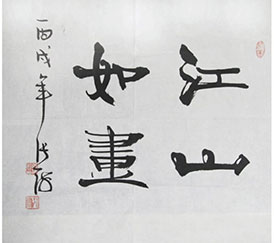 江山
如畫
丙戌年